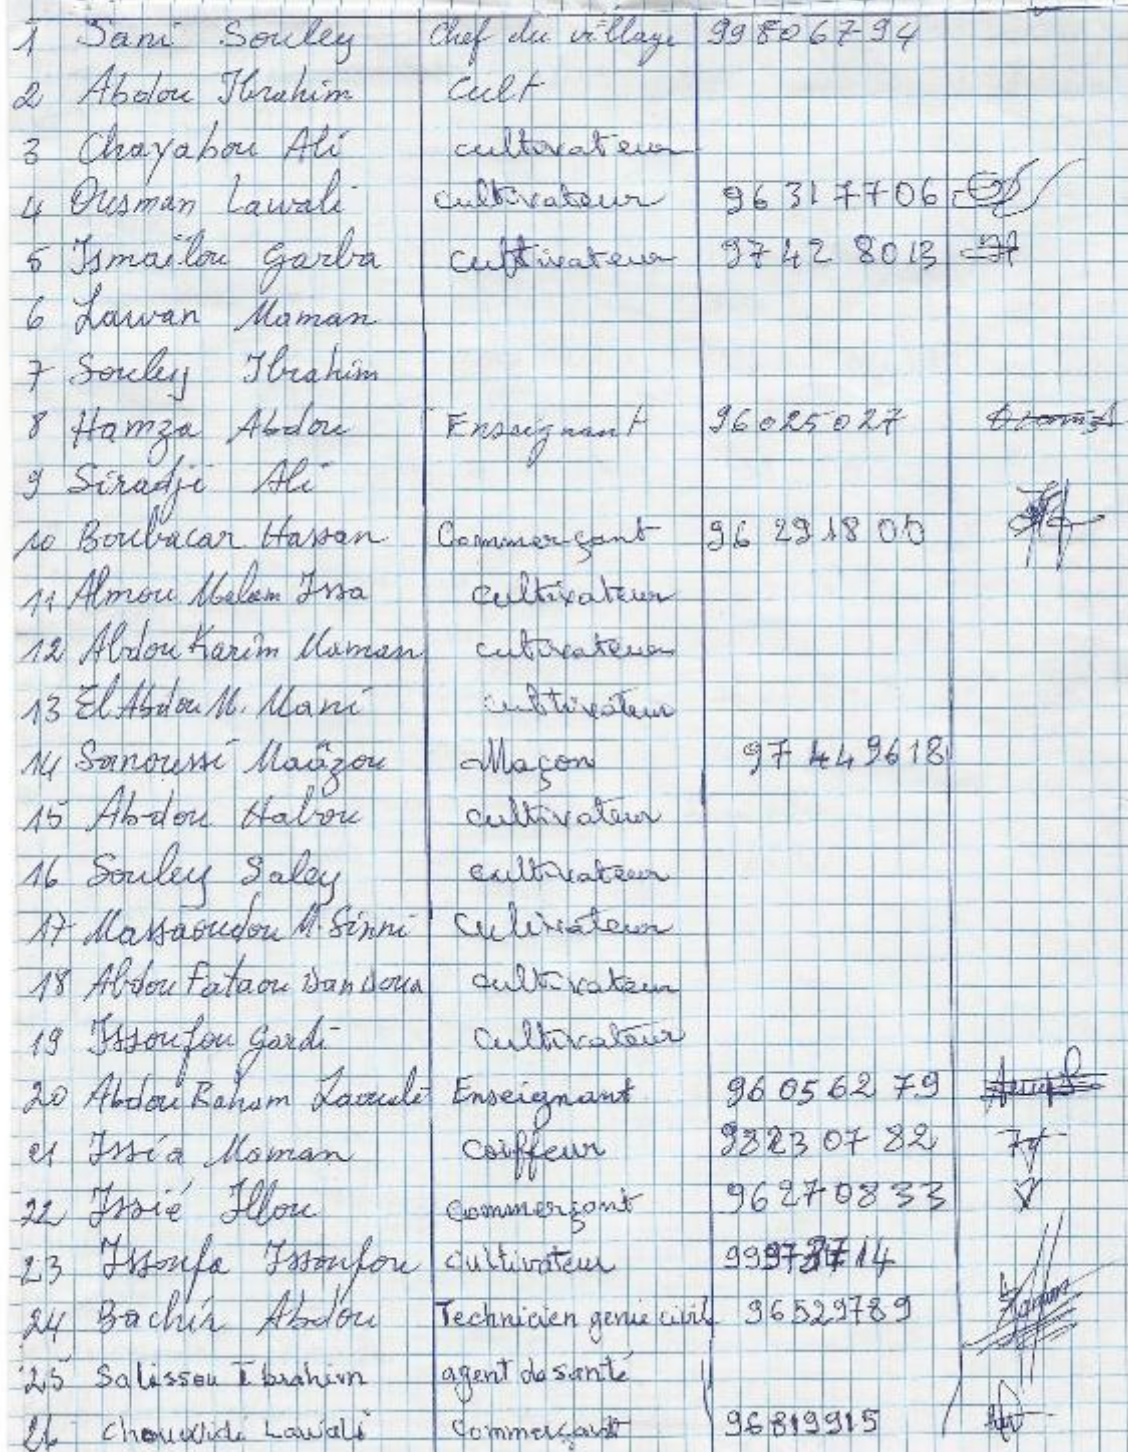 1 Sani Souley Chef du village 99806794
2 Abdou Ibrahim Cult
3 Chayabou Ali cultivateur
4 Ousman Lawali cultivateur 96 31 77 06
5 Ismaïlou Garba cultivateur 97 42 80 13
6 Lawan Maman
7 Souley Ibrahim
8 Hamza Abdou Enseignant 96025027
9 Siradji Ali
10 Boubacar Hassan Commerçant 96 29 18 00
11 Almou Malam Issa cultivateur
12 Abdou Karim Maman cutivateur
13 El Abdou M. Mani cultivateur
14 Sanoussi Maâzou Maçon 97 44 96 18
15 Abdou Habou cultivateur
16 Souley Saley cultivateur
17 Massaoudou M. Sinni Culivateur
18 Abdou Fataou cultivateur
19 Issoufou Gardi Cultivateur
20 Abdou Enseignant 96 05 62 79
21 Issia Maman Coiffeur 98230782
22 Issié Illou commerçant 96270833
23 Issoufa Issoufou cultivateur
24 Bachir Abdou Technicien genie civil 96529789
25 Salissou Ibrahim agent de santé
26 Lawali Commerçant 96819915